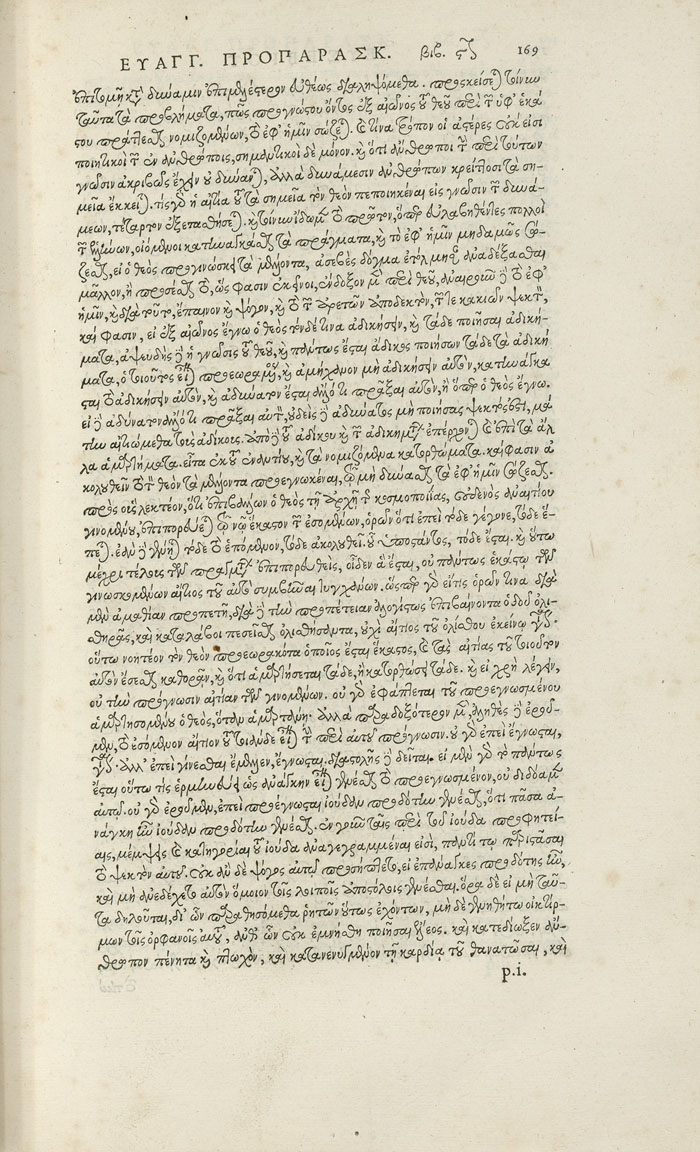 ΕΥΑΓΓ. ΠΡΟΠΑΡΑΣΚ. βιβ. ϛʹ 169
ἐπιτομῇ κατὰ δύναμιν ἐπιμελέστερον εὐθέως διαληψόμεθα. προσκείσεται τοίνυν
ταῦτα τὰ προβλήματα, πῶς προγνώστου ὄντος ἐξ αἰῶνος τοῦ θεοῦ περὶ τῶν ὑφ' ἑκά
στου πράττεσθαι νομιζομένων, τὸ ἐφ' ἡμῖν σώζεται. καὶ τίνα τρόπον οἱ ἀστέρες οὐκ εἰσὶ
ποιητικοὶ τῶν ἐν ἀνθρώποις, σημαντικοὶ δὲ μόνον. καὶ ὅτι ἄνθρωποι τὴν περὶ τούτων
γνῶσιν ἀκριβῶς ἔχειν οὐ δύνανται, ἀλλὰ δυνάμεσιν ἀνθρώπων κρείττοσι τὰ ση-
μεῖα ἔκκειται. τίς γὰρ ἡ αἰτία τοῦ τὰ σημεῖα τὸν θεὸν πεποιηκέναι εἰς γνῶσιν τῶν δυνά-
μεων, τέταρτον ἐξετασθήσεται. καὶ τοίνυν ἴδωμεν τὸ πρῶτον, ὅπερ εὐλαβηθέντες πολλοὶ
τῶν ἑλλήνων, οἰόμενοι κατηναγκάσθαι τὰ πράγματα, καὶ τὸ ἐφ' ἡμῖν μηδαμῶς σώ-
ζεσθαι, εἰ ὁ θεὸς προγινώσκει τὰ μέλλοντα, ἀσεβὲς δόγμα ἐτόλμησαν ἀναδέξασθαι
μᾶλλον, ἢ προσέσθαι τὸ, ὥς φασιν ἐκεῖνοι, ἔνδοξον μὲν περὶ θεοῦ, ἀναιροῦν δὲ τὸ ἐφ'
ἡμῖν, καὶ διὰ τοῦτο, ἔπαινον καὶ ψόγον, καὶ τὸ τῶν ἀρετῶν ἀποδεκτὸν, τῶν τε κακιῶν ψεκτόν,
καί φασιν, εἰ ἐξ αἰῶνος ἔγνω ὁ θεὸς τόνδε τινὰ ἀδικήσειν, καὶ τάδε ποιῆσαι ἀδική-
ματα, ἀψευδὴς δὲ ἡ γνῶσις τοῦ θεοῦ, καὶ πάντως ἔσται ἄδικος ποιήσων τάδε τὰ ἀδική
ματα, ὁ τοιοῦτος εἶναι προεωραμένος, καὶ ἀμήχανον μὴ ἀδικήσειν αὐτὸν, κατηνάγκα
σται τὸ ἀδικήσειν αὐτὸν, καὶ ἀδύνατον ἔσται ἄλλο τι πρᾶξαι αὐτὸν, ἢ ὅπερ ὁ θεὸς ἔγνω.
εἰ δὲ ἀδύνατον ἄλλο τι πρᾶξαι αὐτόν, οὐδεὶς δὲ ἀδύνατος μὴ ποιήσας ψεκτός ἐστι, μά
την αἰτιώμεθα τοὺς ἀδίκους. ἀπὸ δὲ τοῦ ἀδίκου καὶ τῶν ἀδικημάτων ἐπέρχονται καὶ ἐπὶ τὰ ἄλ
λα ἁμαρτήματα. εἶτα ἐκ τοῦ ἐναντίου, καὶ τὰ νομιζόμενα κατορθώματα. καί φασιν ἀ
κολουθεῖν τὸ τὸν θεὸν τὰ μέλλοντα προεγνωκέναι, τὸ μὴ δύνασθαι τὰ ἐφ' ἡμῖν σώζεσθαι.
πρὸς οὓς λεκτέον, ὅτι ἐπιβάλλων ὁ θεὸς τῇ ἀρχῇ τῆς κοσμοποιίας, οὐδενὸς ἀναιτίου
γινομένου, ἐπιπορεύεται τῷ νῷ ἕκαστον τῶν ἐσομένων, ὁρῶν ὅτι ἐπεὶ τόδε γέγονε, τόδε ἕ-
πεται. ἐὰν δὲ γένηται τόδε τὸ ἑπόμενον, τόδε ἀκολουθεῖ. οὗ ὑποστάντος, τόδε ἔσται. καὶ οὕτω
μέχρι τέλους τῶν πραγμάτων ἐπιπορευθεὶς, οἶδεν ἃ ἔσται, οὐ πάντως ἑκάστῳ τῶν
γινωσκομένων αἴτιος τοῦ αὐτὸ συμβῆναι τυγχάνων. ὥσπερ γὰρ εἴ τις ὁρῶν τινα διὰ
μὲν ἀμαθίαν προπετῆ, διὰ δὲ τὴν προπέτειαν ἀλογίστως ἐπιβαίνοντα ὁδοῦ ὀλι-
σθηρᾶς, καὶ καταλάβοι πεσεῖσθαι ὀλισθήσαντα, οὐχὶ αἴτιος τοῦ ὀλίσθου ἐκείνῳ γίνεται.
οὕτω νοητέον τὸν θεὸν προεωρακότα ὁποῖος ἔσται ἕκαστος, καὶ τὰς αἰτίας τοῦ τοιοῦτον
αὐτὸν ἔσεσθαι καθορᾶν, καὶ ὅτι ἁμαρτήσεται τάδε, ἢ κατορθώσει τάδε. καὶ εἰ χρὴ λέγειν,
οὐ τὴν πρόγνωσιν αἰτίαν τῶν γινομένων. οὐ γὰρ ἐφάπτεται τοῦ προεγνωσμένου
ἁμαρτησομένου ὁ θεὸς, ὅταν ἁμαρτάνῃ. ἀλλὰ παραδοξότερον μὲν, ἀληθὲς δὲ ἐροῦ-
μεν, τὸ ἐσόμενον αἴτιον τοῦ τοιάνδε εἶναι τὴν περὶ αὐτοῦ πρόγνωσιν. οὐ γὰρ ἐπεὶ ἔγνωσται,
γίνεται. ἀλλ' ἐπεὶ γίνεσθαι ἔμελλεν, ἔγνωσται. διαστολῆς δὲ δεῖται. εἰ μὲν γὰρ τὸ πάντως
ἔσται οὕτω τὶς ἑρμηνεύει ὡς ἀνάγκην εἶναι γενέσθαι τὸ προεγνωσμένον, οὐ διδόαμεν
αὐτῷ. οὐ γὰρ ἐροῦμεν, ἐπεὶ προέγνωσται ἰούδαν προδότην γενέσθαι, ὅτι πᾶσα ἀ-
νάγκη ἦν ἰούδαν προδότην γενέσθαι. ἐν γοῦν ταῖς περὶ τοῦ ἰούδα προφητεί-
αις, μέμψεις καὶ κατηγορίαι τοῦ ἰούδα ἀναγεγραμμέναι εἰσὶ, παντί τῳ παριστᾶσαι
τὸ ψεκτὸν αὐτοῦ. οὐκ ἂν δὲ ψόγος αὐτῷ προσήπτετο, εἰ ἐπάναγκες προδότης ἦν,
καὶ μὴ ἐνεδέχετο αὐτὸν ὅμοιον τοῖς λοιποῖς ἀποστόλοις γενέσθαι. ὅρα δὲ εἰ μὴ ταῦ-
τα δηλοῦται, δι' ὧν παραθησόμεθα ῥητῶν οὕτως ἐχόντων, μὴ δὲ γενηθήτω οἰκτίρ-
μων τοῖς ὀρφανοῖς αὐτοῦ, ἀνθ' ὧν οὐκ ἐμνήσθη ποιῆσαι ἔλεος. καὶ κατεδίωξεν ἄν-
θρωπον πένητα καὶ πτωχὸν, καὶ κατανενυγμένον τῇ καρδίᾳ τοῦ θανατῶσαι, καὶ
p.i.